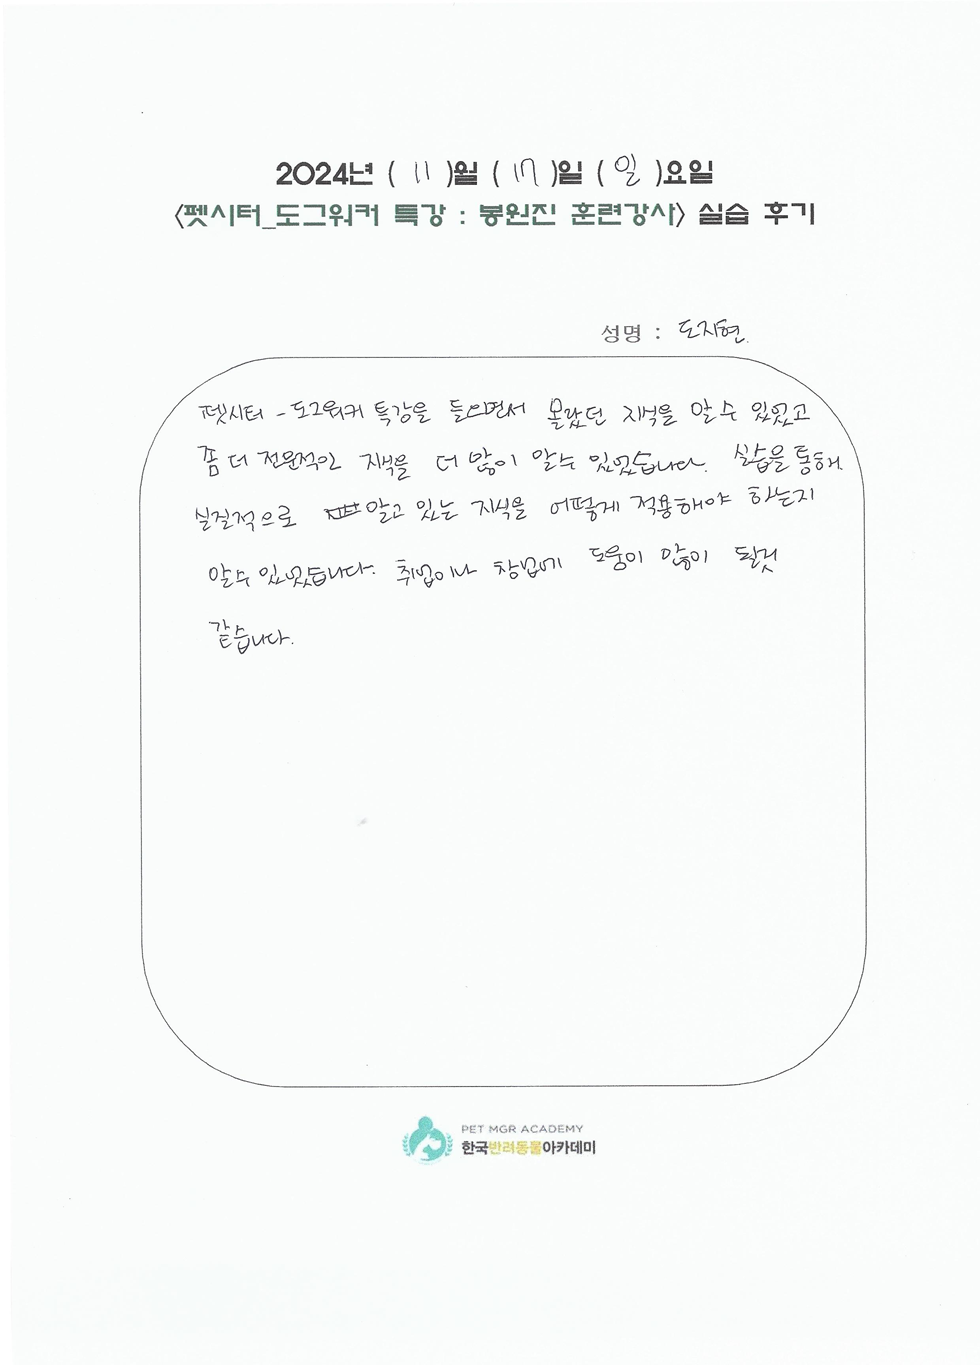 2024년 ( 11 )월 ( 17 )일 ( 일 )요일
<펫시터_도그워커 특강 : 봉원진 훈련강사> 실습 후기
성명 : 도지현.
펫시터 - 도그워커 특강을 들으면서 몰랐던 지식을 알 수 있었고
좀 더 전문적인 지식을 더 많이 알수 있었습니다. 실습을 통해
실질적으로 알고 있는 지식을 어떻게 적용해야 하는지
알수 있었습니다. 취업이나 창업에 도움이 많이 될것
같습니다.
PET MGR ACADEMY
한국반려동물아카데미